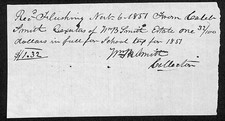 Rec'd Flushing Nov 6 1851 From Caleb
Smith Executor of Wm B Smith Estate one 32/100
dollars in full for School tax for 1851
$1.32 Wm H Smith
Collector